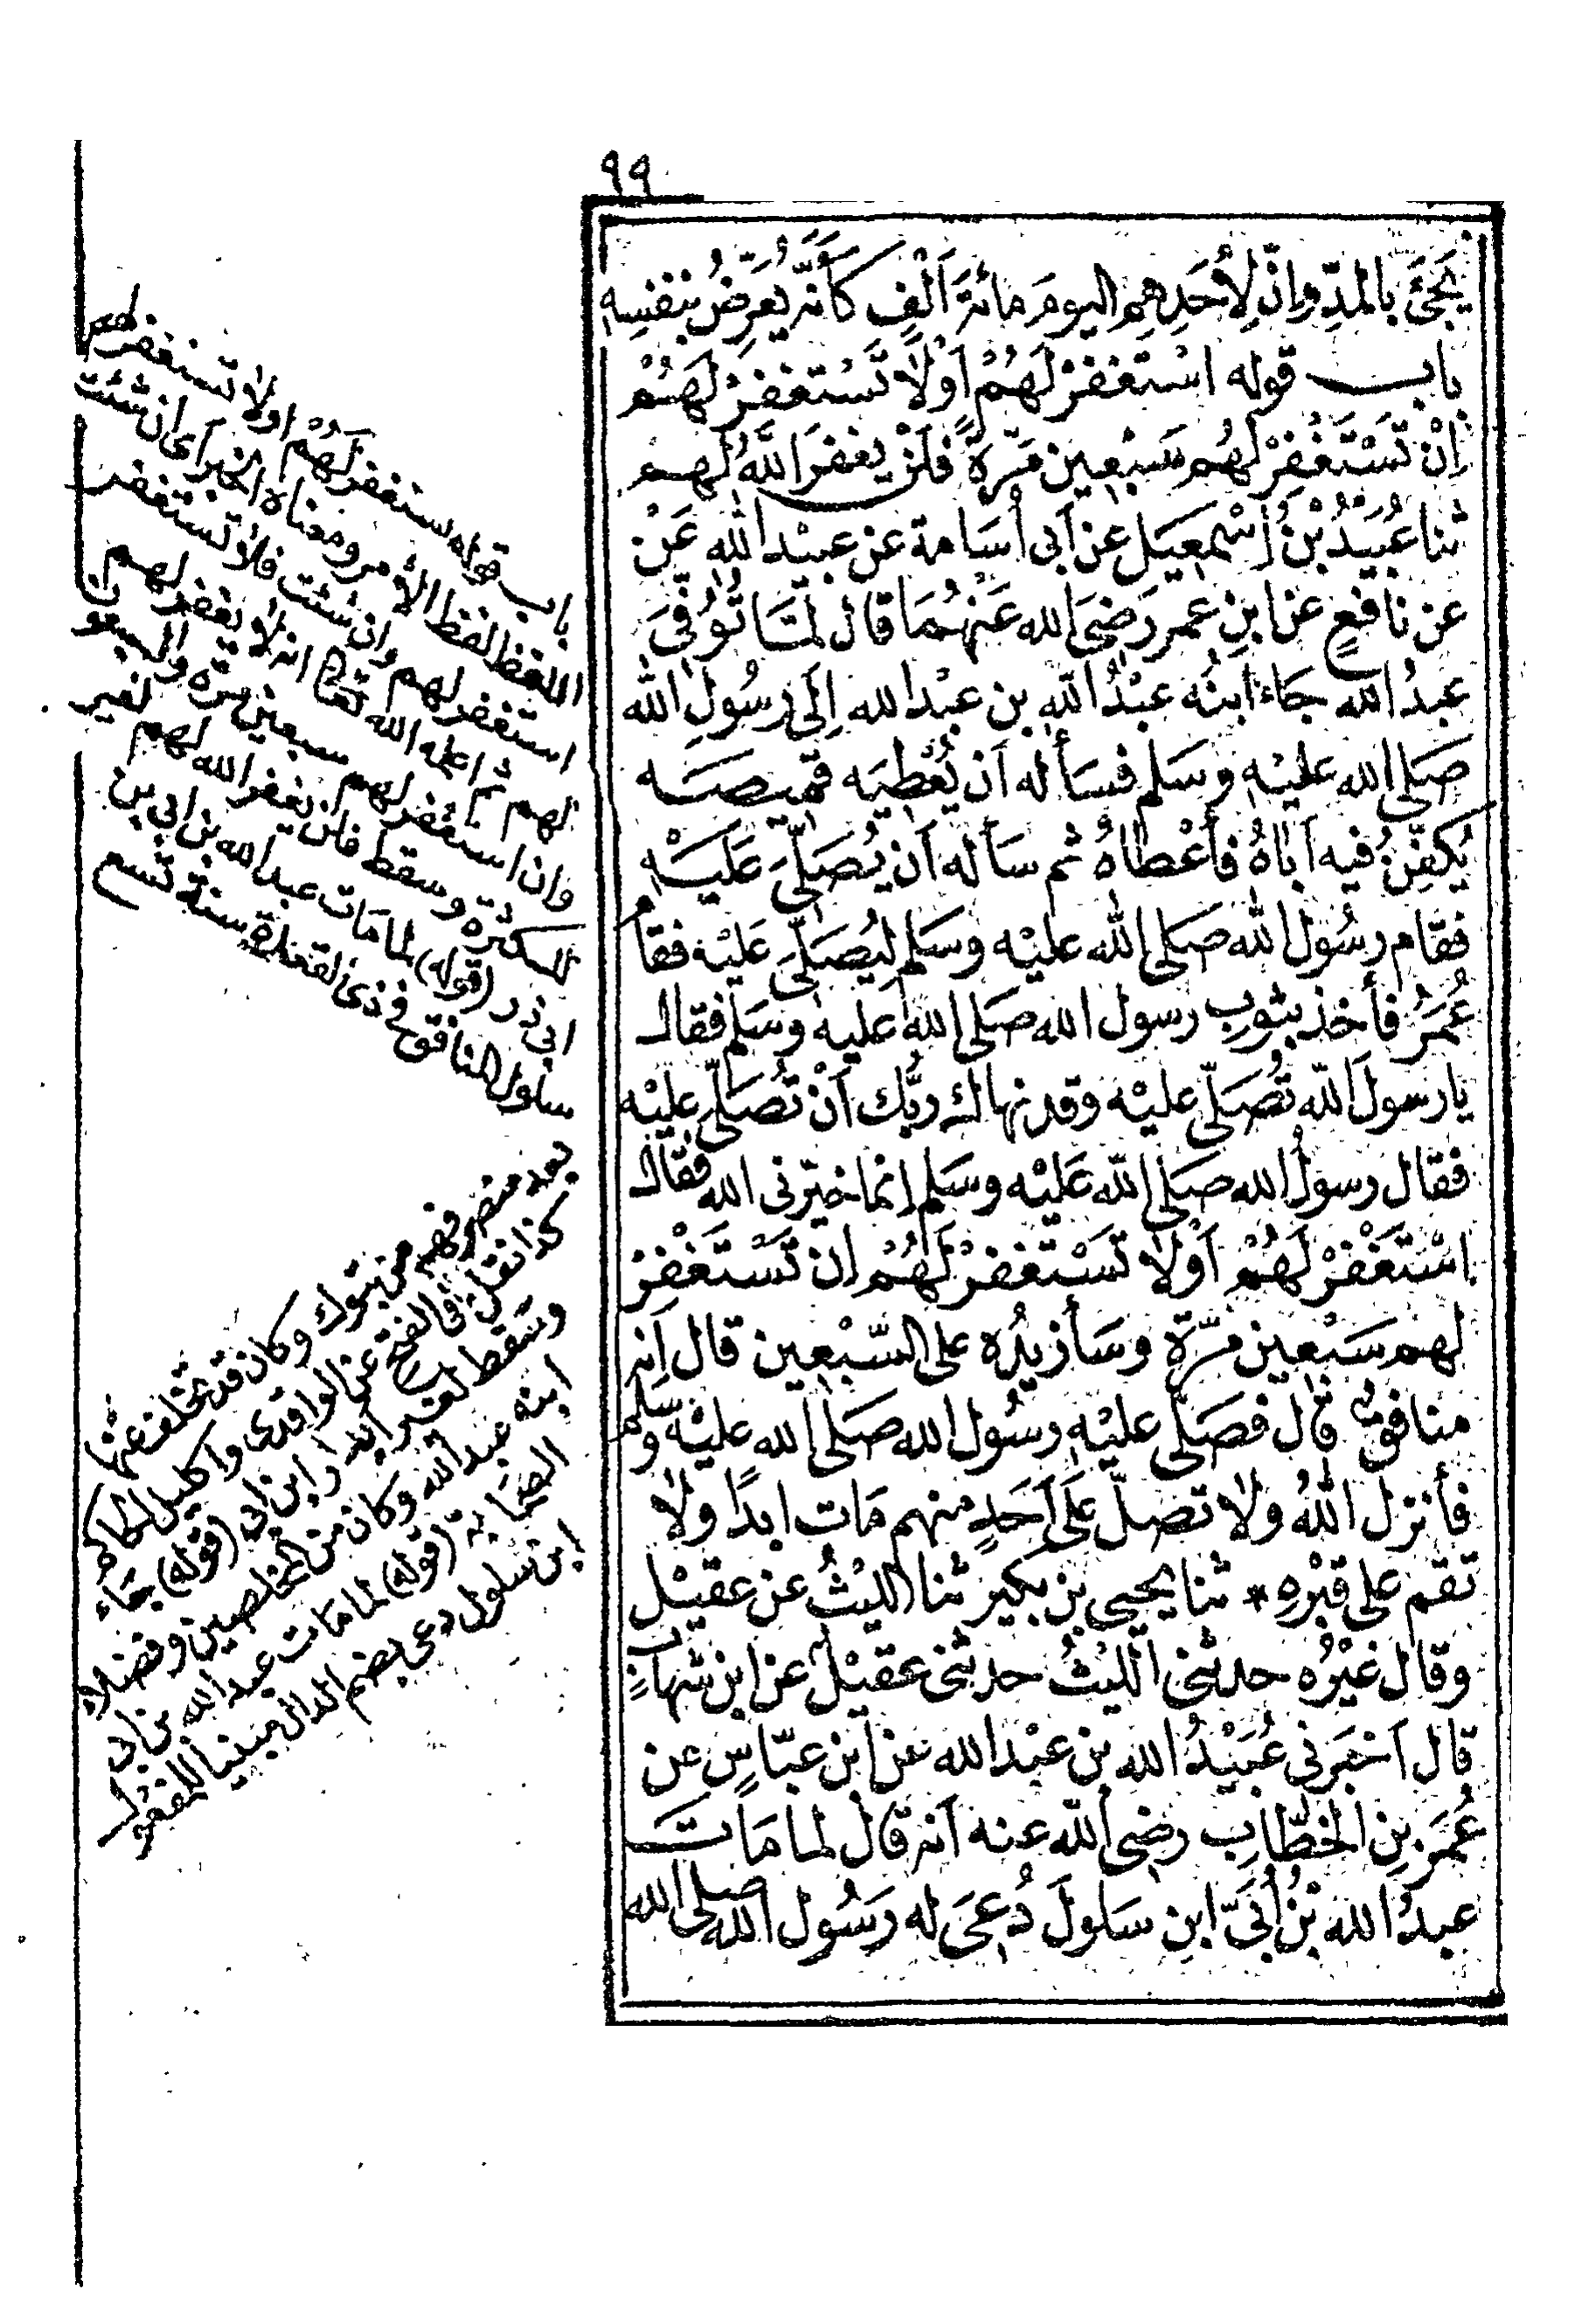 ٩٩
يَجِئَ بالمدِّ وإنّ لِأحَدِهِم اليومَ مائةَ اَلْفٍ كأنّه يُعَرِّضُ بنفسِه
باب قوله اسْتَغْفِرْ لَهُمْ اَوْ لَا تَسْتَغْفِرْ لَهُمْ
اِنْ تَسْتَغْفِرْ لَهُم سَبْعِينَ مَرَّةً فَلَنْ يَغْفِرَ اللَّهُ لَهُم
ثنا عُبَيْدُ بْنُ اِسْمٰعِيلَ عن اَبى اُسَامة عن عبيْد الله عَنْ
عن نافعٍ عن ابنِ عمر رَضىَ الله عَنْهُمَا قال لمَّا تُوُفِّىَ
عبدُ الله جَاءَ ابنُه عبْدُ اللّه بن عبْد الله اِلَى رسُولِ الله
صَلى الله عليْه وسَلم فسَأله اَن يُعْطِيَه قمِيصَه
يُكفِّنُ فيه اَباهُ فأعْطاهُ ثم سأله اَن يُصَلِّىَ عَليْه
فقام رسُول الله صَلى الله عليْه وسَلم ليُصَلِّىَ عَليْه فقام
عُمَرُ فأخذ بثوبِ رسول الله صَلى الله عَليه وسَلم فقال
يا رسولَ اللّه تُصَلّى عليْه وقد نهاك ربُّك اَنْ تُصَلِّىَ عليْه
فقال رسولُ الله صَلى اللّه عَليْه وسَلم إنما خيّرنى الله فقال
اسْتَغْفِرْ لَهُمْ اَوْ لَا تَسْتَغْفِرْ لَهُمْ اِن تَسْتَغْفِرْ
لهم سَبْعِين مَرّة وسَأزيدُه على السّبْعِين قال اِنه
منافقٌ قال فصَلّى عليْه رسُول الله صَلى الله عليْه وسلم
فأنزل اللهُ ولا تصلّ عَلَى اَحَدٍ منهم مَات ابدًا ولا
تقم على قبْرِه * ثنا يحيى بن بكير ثنا الليْثُ عن عقيْل
وقال غيْرُه حدثنى الليْثُ حدثنى عقيْلٌ عن ابن شهابٍ
قال اَخبَرنى عُبَيْدُ الله بن عبْد الله عن ابن عبّاسٍ عن
عُمَرَ بنِ الخطّابِ رضى اللّه عنه اَنه قال لما مَاتَ
عبدُ الله بْنُ اُبَىّ ابن سَلولَ دُعِىَ له رَسُول الله صَلى الله
باب قوله ستغفر لَهُمْ اولا تستغفر لهم
اللفظ لفظ الأمر ومعناه الخبر اى ان شئت
استغفر لهم وان شئت فلا تستغفر
لهم ثم اعلمه الله تعالى انه لا يغفر لهم
وان استغفر لهم سبعين مرة والسبعون
للكثرة وسقط فلن يغفر الله لهم لغير
ابى ذر (قوله) لما مَات عبد الله بن ابى بن
سلول المنافق فى ذى القعدة سنة تسع
بعد منصرفهم من تبوك وكان قد تخلف عنها
كذا نقل فى الفتح عن الواقدى واكليل الحاكم
وسَقط لغير ابى ذر ابن ابى (قوله) جاء
ابنه عبد الله وكان من المخلصين وفضلاء
الصحابة (قوله) لما مَات عبد الله بن ابى
ابن سلول دعى بضم الدال مبنيا للمفعول